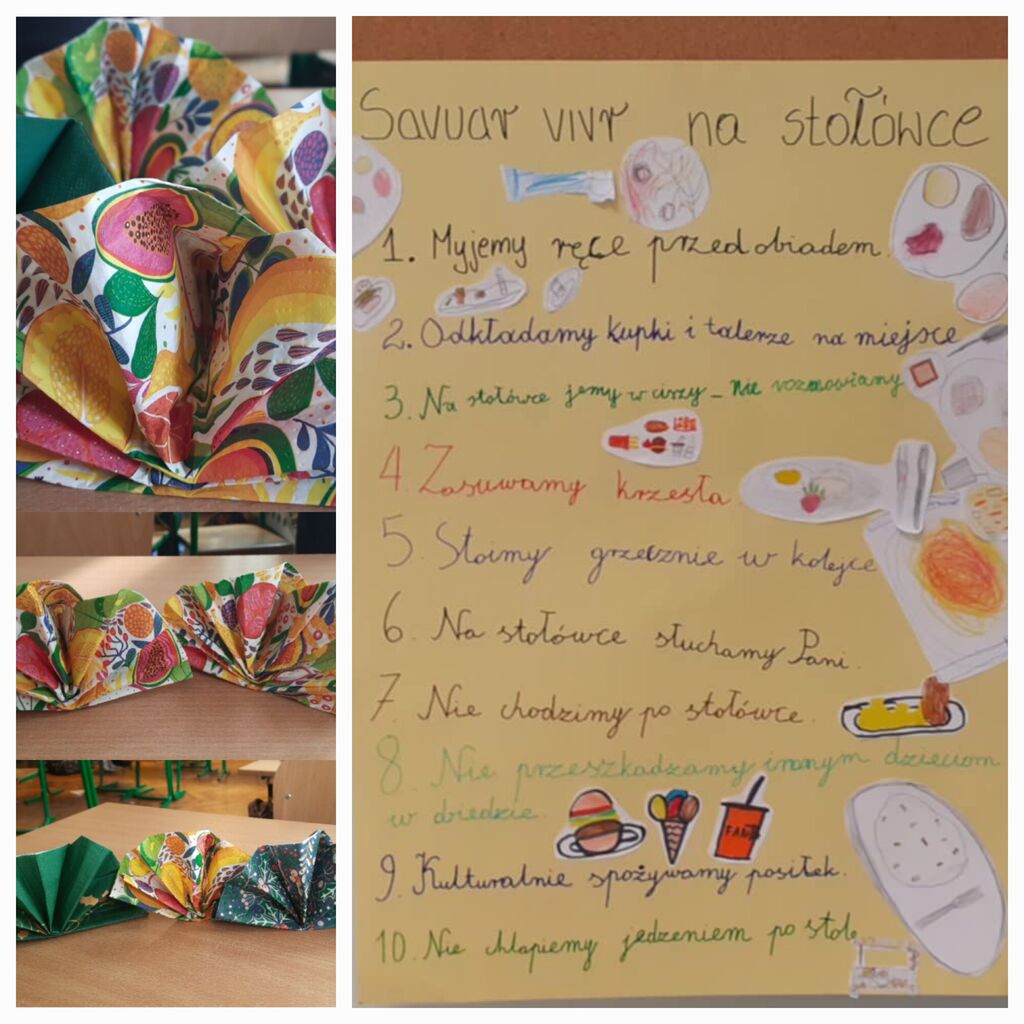 Savuar vivr na stołówce
1. Myjemy ręce przed obiadem.
2. Odkładamy kupki i talerze na miejsce
3. Na stołówce jemy w ciszy - nie rozmawiamy
4. Zasuwamy krzesła.
5. Stoimy grzecznie w kolejce
6. Na stołówce słuchamy Pani.
7. Nie chodzimy po stołówce.
8. Nie przeszkadzamy innym dzieciom
w obiedzie.
FANTA
9. Kulturalnie spożywamy posiłek.
10. Nie chlapiemy jedzeniem po stole